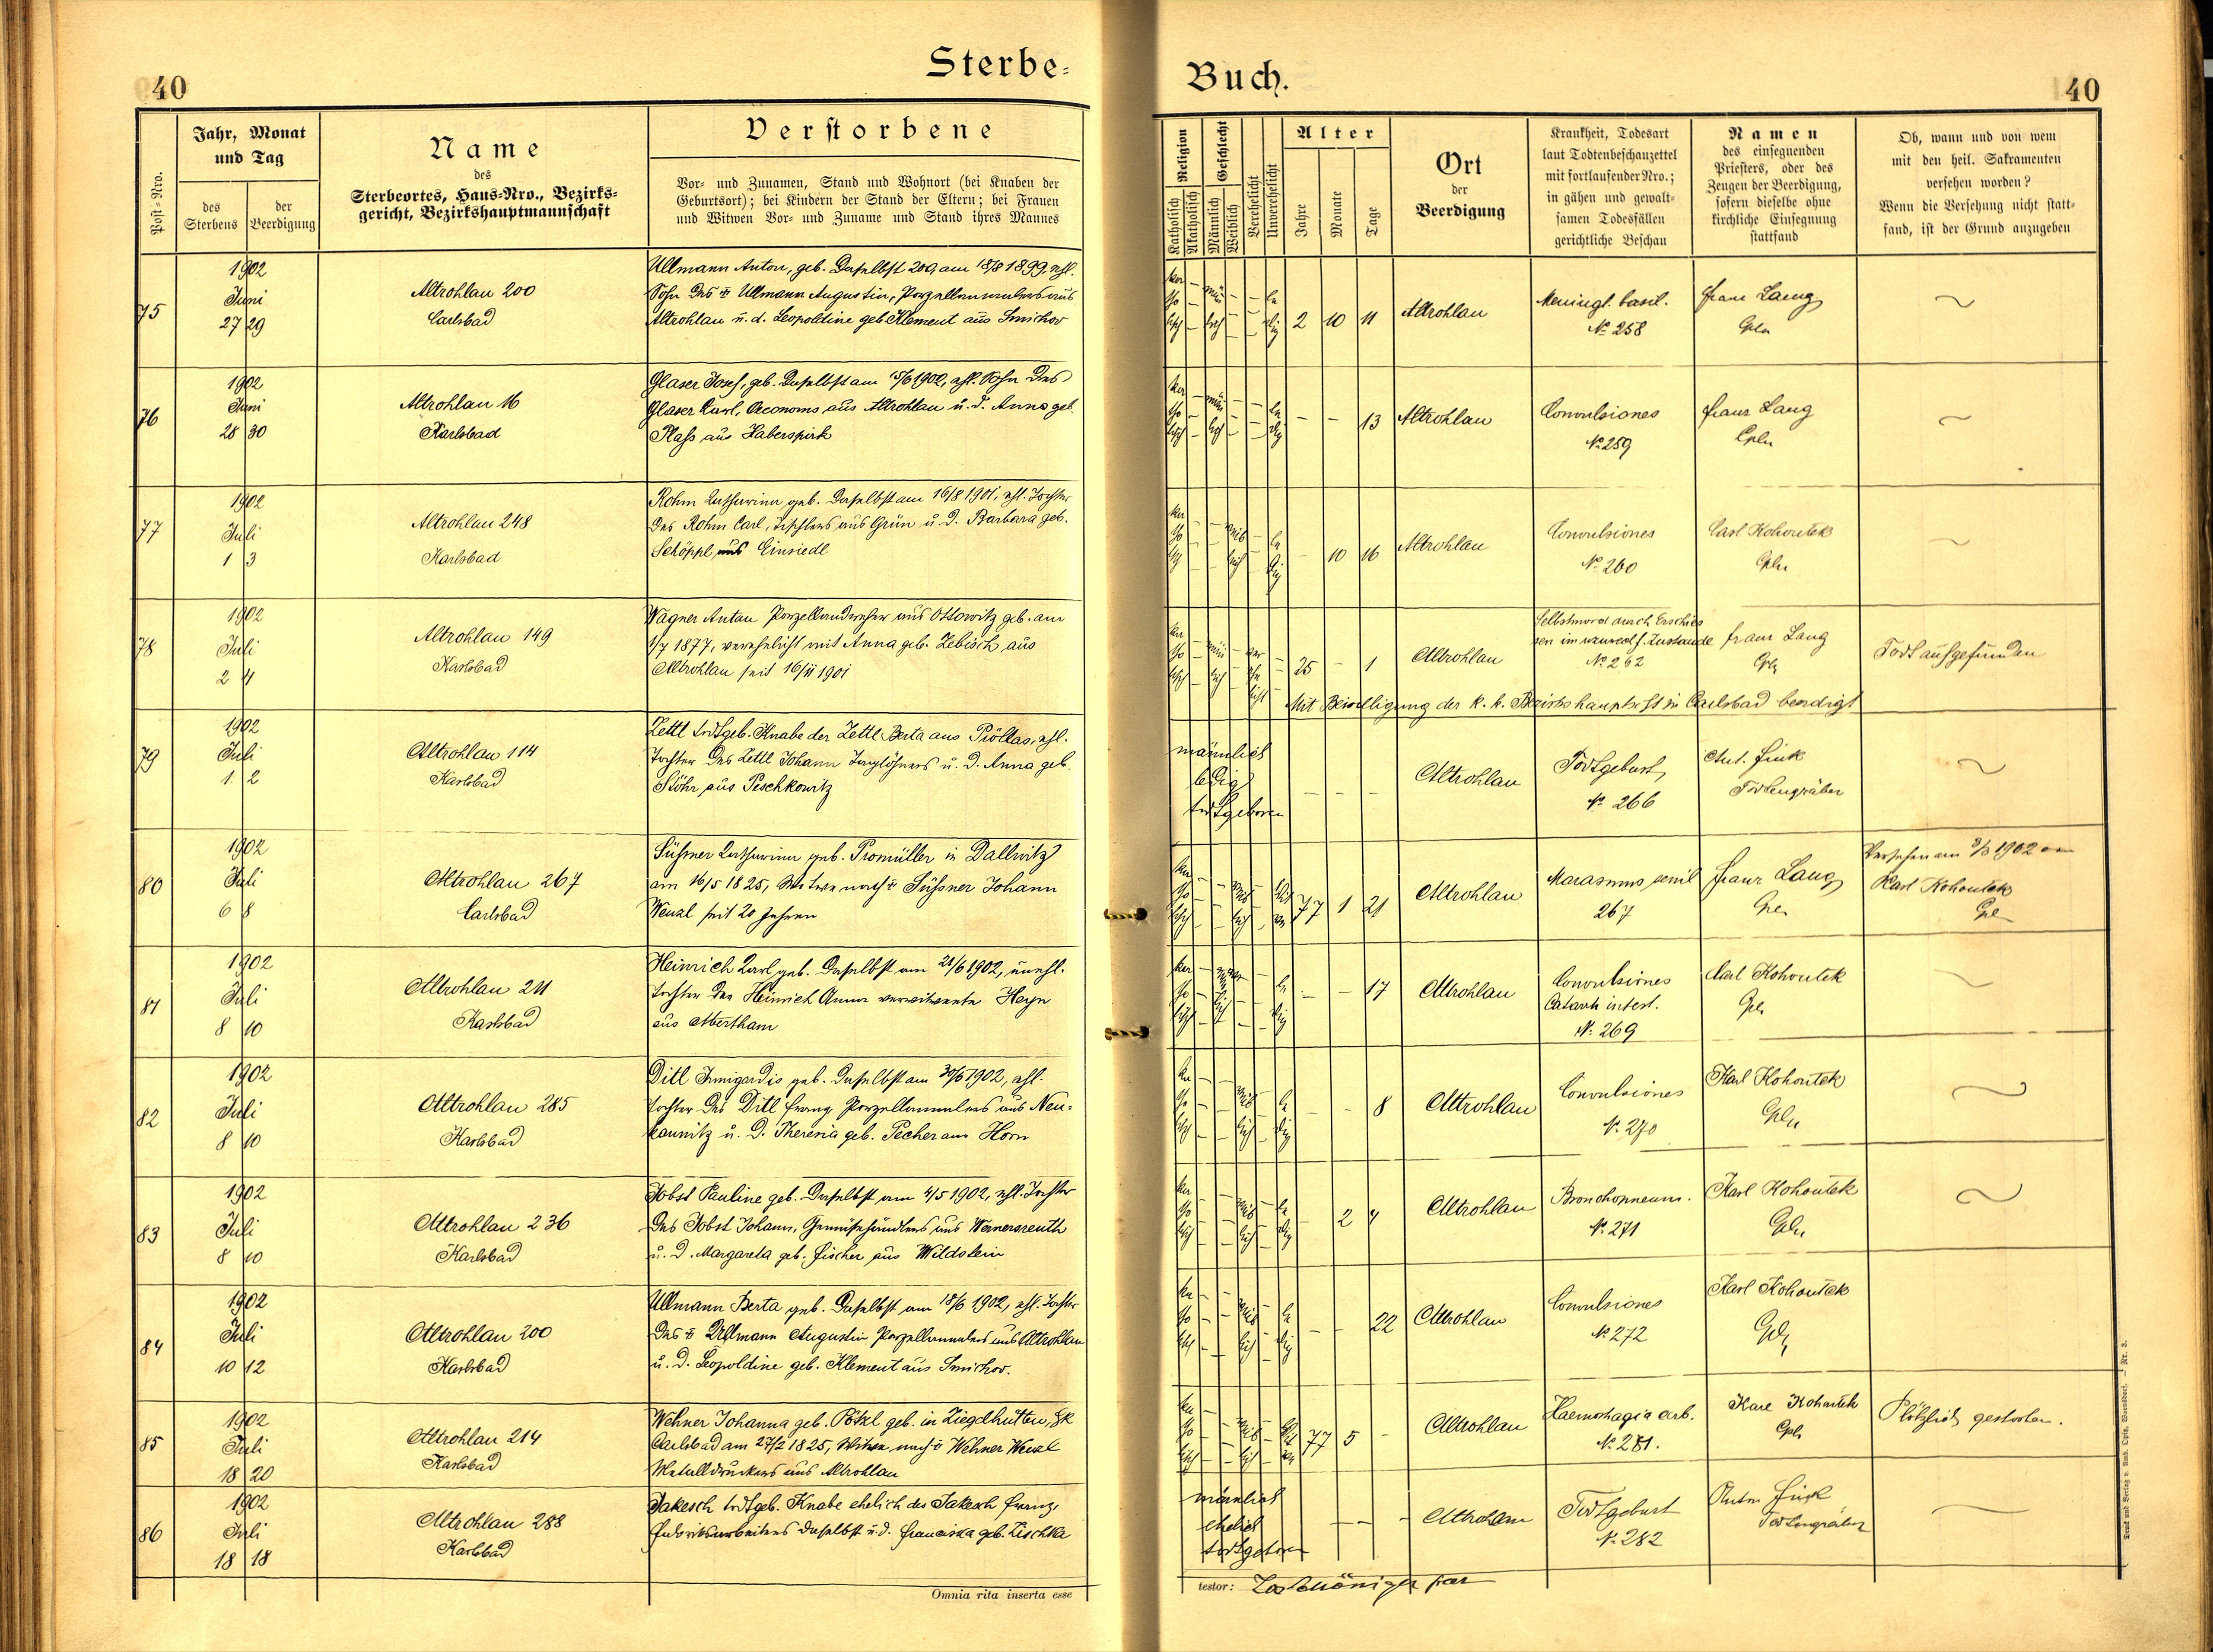 40
Sterbe-
Buch.
40
Post-Nro.
Jahr, Monat
und Tag
des
Sterbens
der
Beerdigung
Name
des
Sterbeortes, Haus-Nro., Bezirks-
gericht, Bezirkshauptmannschaft
Verstorbene
Vor- und Zunamen, Stand und Wohnort (bei Knaben der
Geburtsort); bei Kindern der Stand der Eltern; bei Frauen
und Witwen Vor- und Zuname und Stand ihres Mannes
Religion
Katholisch
Akatholisch
Geschlecht
Männlich
Weiblich
Verehelicht
Unverehelicht
Alter
Jahre
Monate
Tage
Ort
der
Beerdigung
Krankheit, Todesart
laut Todtenbeschauzettel
mit fortlaufender Nro.;
in gähen und gewalt-
samen Todesfällen
gerichtliche Beschau
Namen
des einsegnenden
Priesters, oder des
Zeugen der Beerdigung,
sofern dieselbe ohne
kirchliche Einsegnung
stattfand
Ob, wann und von wem
mit den heil. Sakramenten
versehen worden?
Wenn die Versehung nicht statt-
fand, ist der Grund anzugeben
75
1902
Juni
27 29
Altrohlau 200
Carlsbad
Ullmann Anton, geb. daselbst 200, am 18/8 1899, ehl.
Sohn des Ullmann Augustin, Porzellanmalers aus
Altrohlau u. d. Leopoldine geb. Klement aus Smichov
2 10 11
Altrohlau
Meningt. basil.
No 258
Franz Lang
Cpln
76
1902
Juni
28 30
Altrohlau 16
Karlsbad
Glaser Josef, geb. daselbst am 15/6 1902, ehl. Sohn des
Glaser Karl, Oeconoms aus Altrohlau u. d. Anna geb.
Plass aus Haberspirk
- - 13
Altrohlau
Convulsiones
No 259
Franz Lang
Cpln
77
1902
Juli
1 3
Altrohlau 248
Karlsbad
Rohm Katharina geb. daselbst am 16/8 1901, ehl. Tochter
des Rohm Carl, Tischlers aus Grün u. d. Barbara geb.
Schöppl aus Einsiedl
- 10 16
Altrohlau
Convulsiones
No 260
Carl Kohoutek
Cpln
78
1902
Juli
2 4
Altrohlau 149
Karlsbad
Wagner Anton Porzellandreher aus Ottowitz geb. am
1/7 1877, verehelicht mit Anna geb. Zebisch aus
Altrohlau seit 16/11 1901
25 - 1
Altrohlau
Selbstmord durch Erschies
sen im unzurechf. Zustande
No 262
Franz Lang
Cpln
Todt aufgefunden
Mit Bewilligung der k. k. Bezirkshauptsft in Carlsbad beerdigt
79
1902
Juli
1. 2
Altrohlau 114
Karlsbad
Zettl todtgeb. Knabe der Zettl Berta aus Pröllas, ehl.
Tochter des Zettl Johann Taglöhners u. d. Anna geb.
Stöhr aus Peschkowitz
männlich
ledig
todtgeboren
- - -
Altrohlau
Todtgeburt
No 266
Ant. Fink
Todtengräber
80
1902
Juli
6 8
Altrohlau 267
Carlsbad
Süssner Katharina geb. Promüller in Dallwitz
am 16/5 1825, Witwe nach Süssner Johann
Wenzl seit 20 Jahren
77 1 21
Altrohlau
Marasmus senil
267
Franz Lang
Cpl
Versehen am 3/3 1902 von
Karl Kohoutek
Cpl
81
1902
Juli
8 10
Altrohlau 211
Karlsbad
Heinrich Karl geb. daselbst am 21/6 1902, unehl.
Tochter der Heinrich Anna verwitwete Heyn
aus Abertham
- - 17
Altrohlau
Convulsiones
Catarrh intest.
No 269
Carl Kohoutek
Cpl
82
1902
Juli
8 10
Altrohlau 285
Karlsbad
Ditl Irmigardis geb. daselbst am 30/6 1902, ehl.
Tochter des Ditl Franz Porzellanmalers aus Neu-
kaunitz u. d. Theresia geb. Pecher aus Horn
- - 8
Altrohlau
Convulsiones
No 270
Karl Kohoutek
Cpln
83
1902
Juli
8 10
Altrohlau 236
Karlsbad
Jobst Pauline geb. daselbst am 4/5 1902, ehl. Tochter
des Jobst Johann, Gemüsehändlers aus Wernersreuth
u. d. Margareta geb. Fischer aus Wildstein
- 2 4
Altrohlau
Bronchopneum.
No 271
Karl Kohoutek
Cpln
84
1902
Juli
10 12
Altrohlau 200
Karlsbad
Ullmann Berta geb. daselbst am 18/6 1902, ehl. Tochter
des Ullmann Augustin Porzellanmalers aus Altrohlau
u. d. Leopoldine geb. Klement aus Smichov.
- - 22
Altrohlau
Convulsiones
No 272
Karl Kohoutek
Cpl
85
1902
Juli
18 20
Altrohlau 214
Karlsbad
Wehner Johanna geb. Pötzl geb. in Ziegelhütten, Bk
Carlsbad am 27/2 1825, Witwe nach Wehner Wenzl
Metalldruckers aus Altrohlau
77 5 -
Altrohlau
Haemorhagia cerb.
No 281.
Karl Kohoutek
Cpl
Plötzlich gestorben.
86
1902
Juli
18 18
Altrohlau 288
Karlsbad
Jakesch todtgeb. Knabe ehelich des Jakesch Franz,
Fabriksarbeiters daselbst u. d. Franciska geb. Lischka
männlich
ehelich
todtgeboren
- - -
Altrohlau
Todtgeburt
No 282
Anton Fink
Todtengräber
Omnia rita inserta esse
testor:
Druck und Verlag v. Amb. Opitz, Warnsdorf. - Nr. 3.